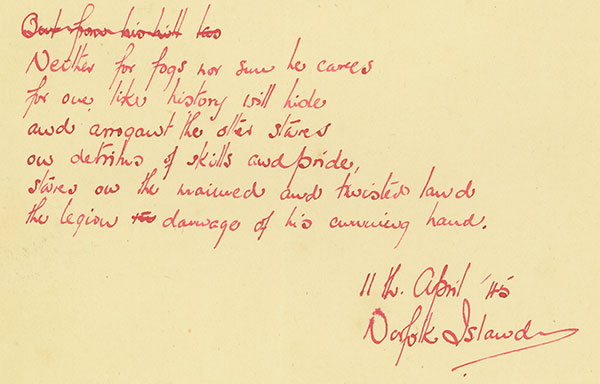 But from his hill
Neither for fogs nor sun he cares
for one, like history will hide
and arrogant the other stares
on detritus of skills and pride,
stares on the maimed and twisted land
the legion damage of his cunning hand.
11 th. April '45
Norfolk Island